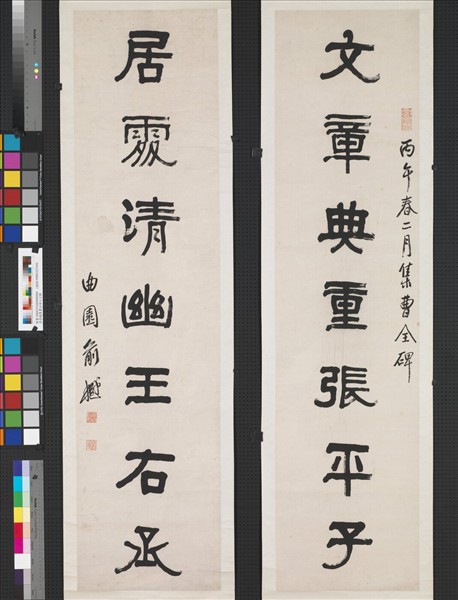 丙午春二月集曹全碑
文章典重張平子
居處清幽王右丞
曲園俞樾